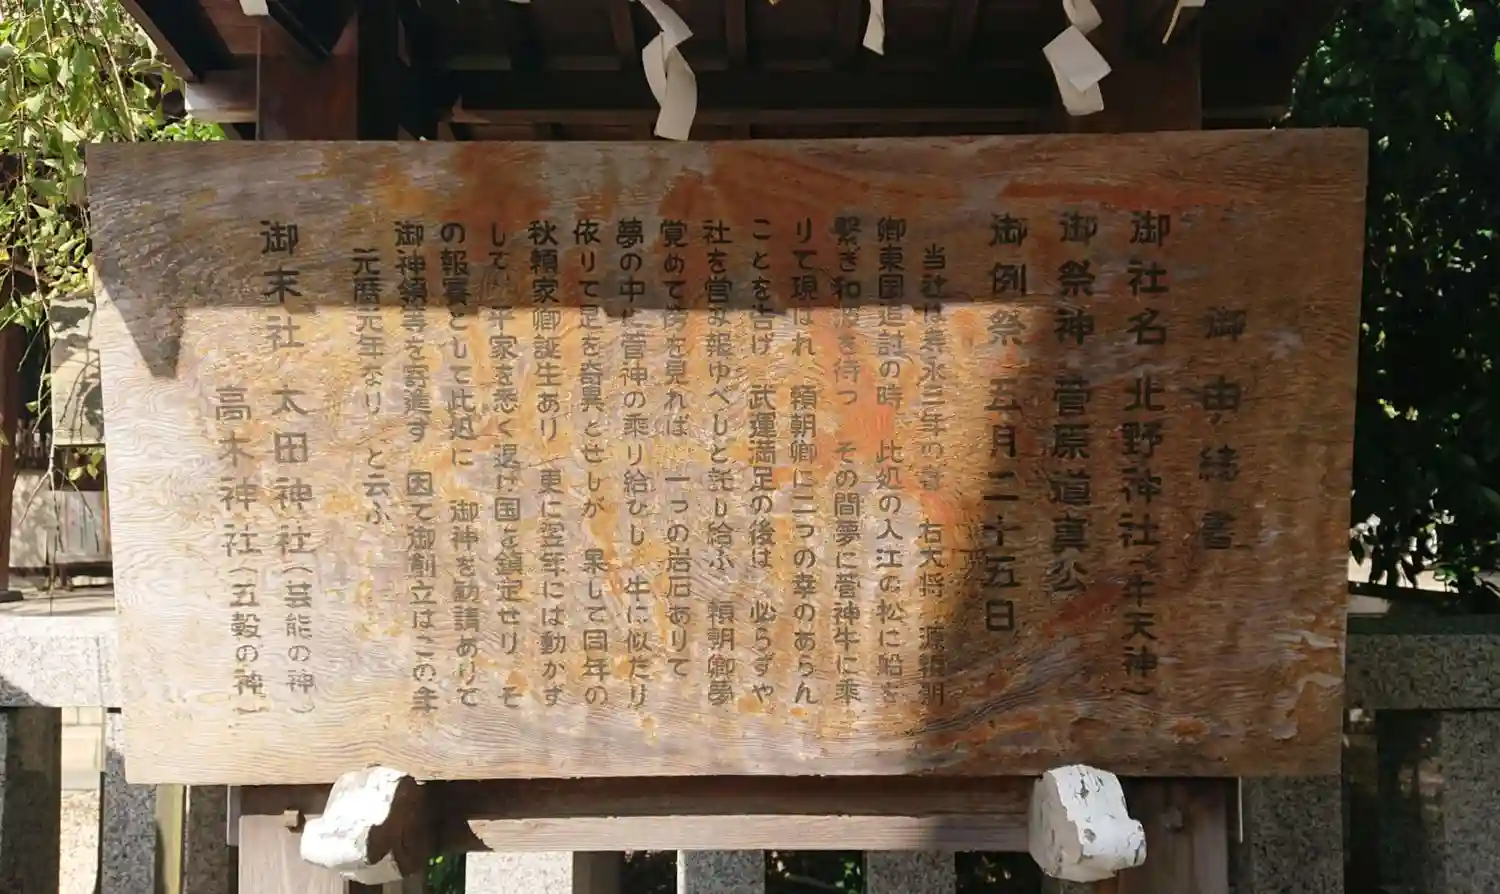 御由緒書
御社名 北野神社（牛天神）
御祭神 菅原道真公
御例祭 五月二十五日
当社は寿永三年の春 右大将 源頼朝
卿東国追討の時 此処の入江の松に船を
繋ぎ和波を待つ その間夢に菅神牛に乗
りて現はれ 頼朝卿に二つの幸のあらん
ことを告げ 武運満足の後は 必らずや
社を営み報ゆべしと託し給ふ 頼朝卿夢
覚めて傍を見れば 一つの岩石ありて
夢の中に菅神の乗り給ひし 牛に似たり
依りて是を奇異とせしが 果して同年の
秋頼家卿誕生あり 東に翌年には動かず
して 平家を悉く退け国を鎮定せり そ
の報賽として此処に 御神を勧請ありて
御神領等を寄進す 因て御創立はこの年
元暦元年なりと云ふ
御末社 太田神社（芸能の神）
高木神社（五穀の神）